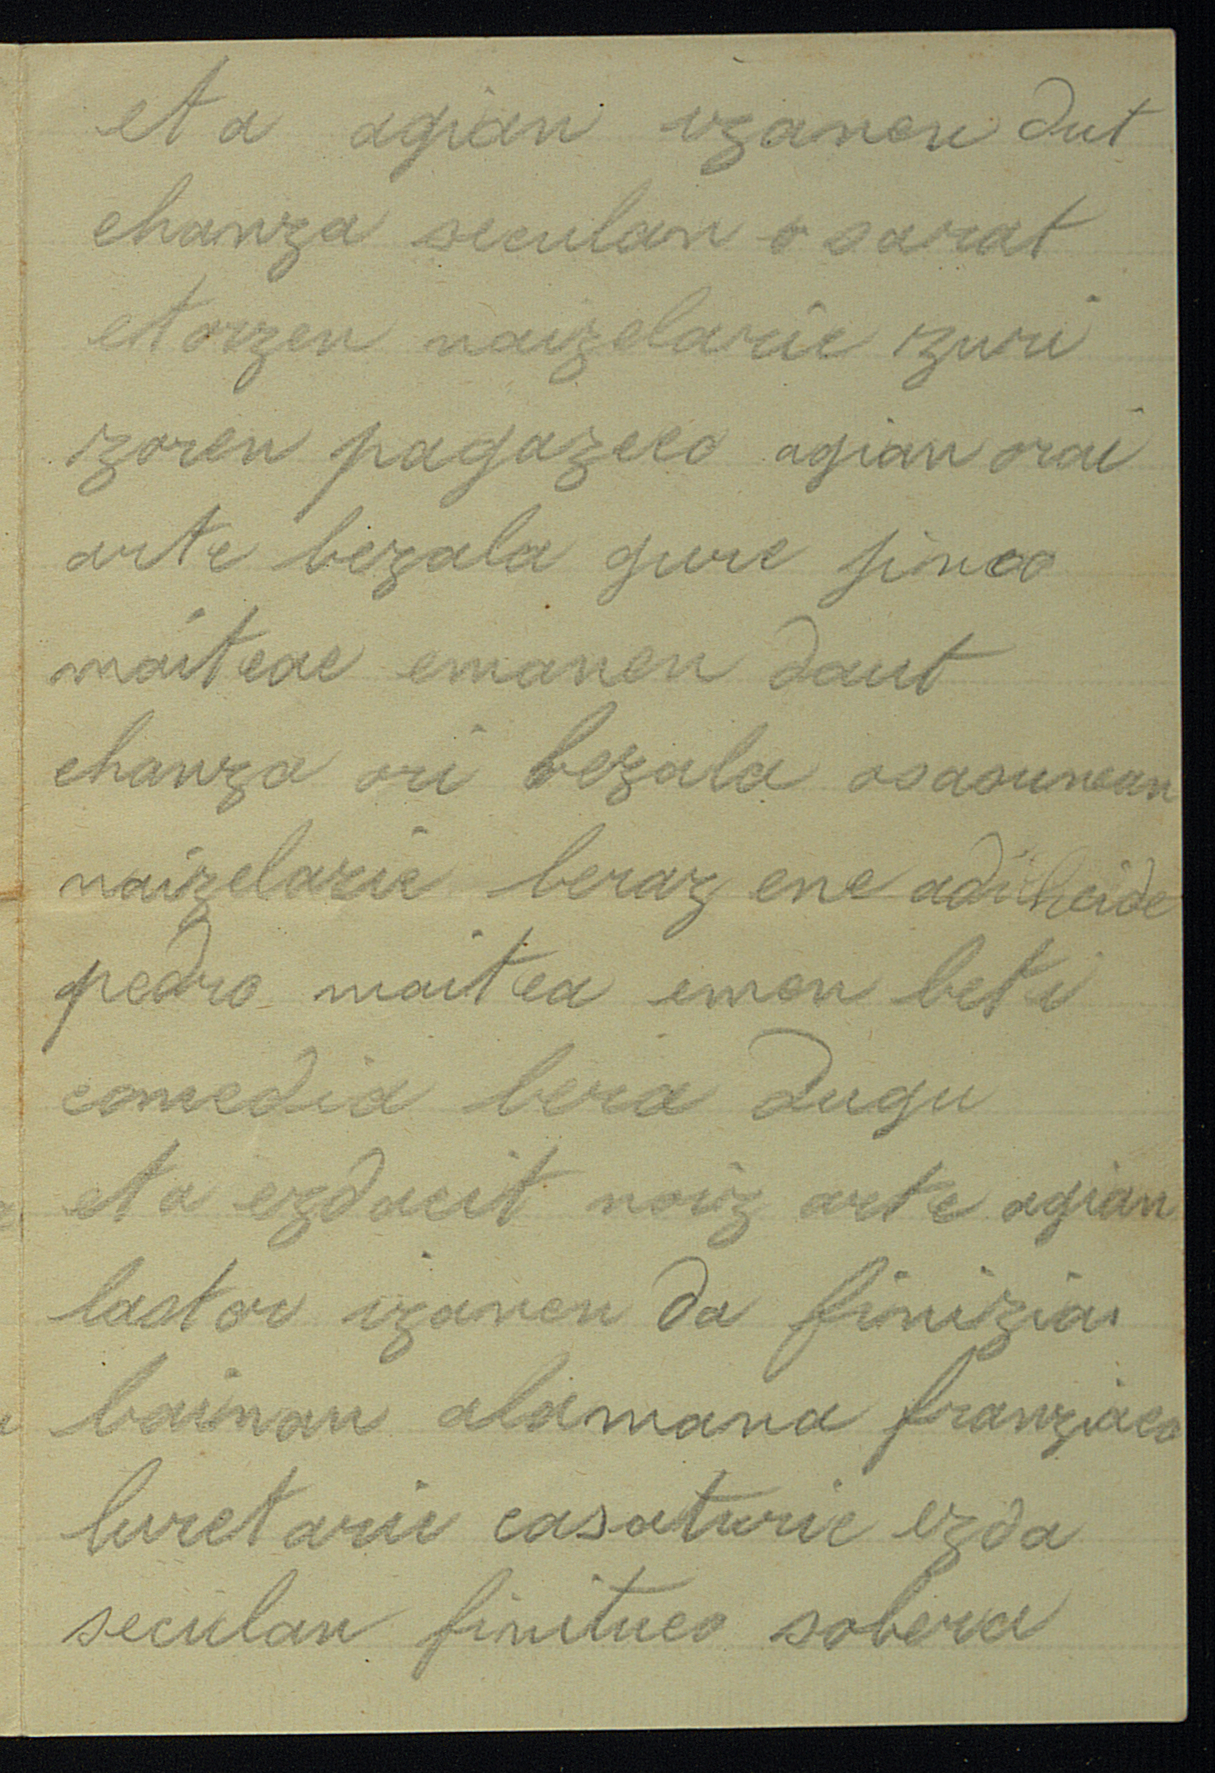 eta agian izanen dut
chanza seculan osarat
etorzen naizelaric zuri
zoren pagazeco agian orai
arte bezala gure jinco
maiteac emanen daut
chanza ori bezala osasunean
naizelaric beraz ene adichcide
pedro maitea emen beti
comedia bera dugu
eta ezdacit noiz arte agian
laster izanen da finizia
bainan alamana franziaco
luretaric casaturic ezda
seculan finituco sobera